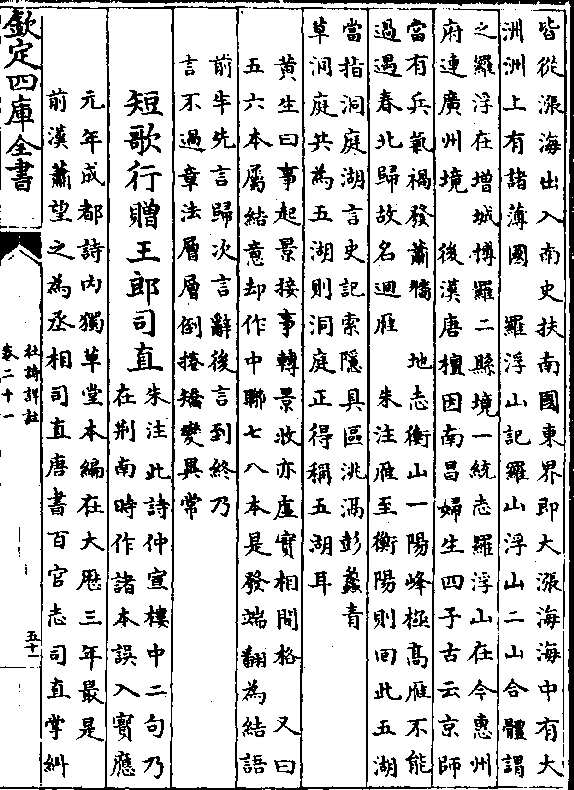 皆從漲海出入南史扶南國東界即大漲海海中有大
洲洲上有諸薄國　羅浮山記羅山浮山二山合體謂
之羅浮在增城博羅二縣境一統志羅浮山在今惠州
府連廣州境　後漢唐檀因南昌婦生四子古云京師
當有兵氣禍發蕭牆　地志衡山一陽峰極高雁不能
過遇春北歸故名迴雁　朱注雁至衡陽則回此五湖
當指洞庭湖言史記索隱具區洮滆彭蠡青
草洞庭共為五湖則洞庭正得稱五湖耳
黄生曰事起景接事轉景收亦虛實相間格　又曰
五六本屬結意却作中聯七八本是發端翻為結語
前半先言歸次言辭後言到終乃
言不過章法層層倒捲矯變異常
短歌行贈王郎司直
朱注此詩仲宣樓中二句乃
在荆南時作諸本誤入寶應
元年成都詩内獨草堂本編在大厯三年最是
前漢蕭望之為丞相司直唐書百官志司直掌糾
欽定四庫全書
杜詩詳註
卷二十一
五十一